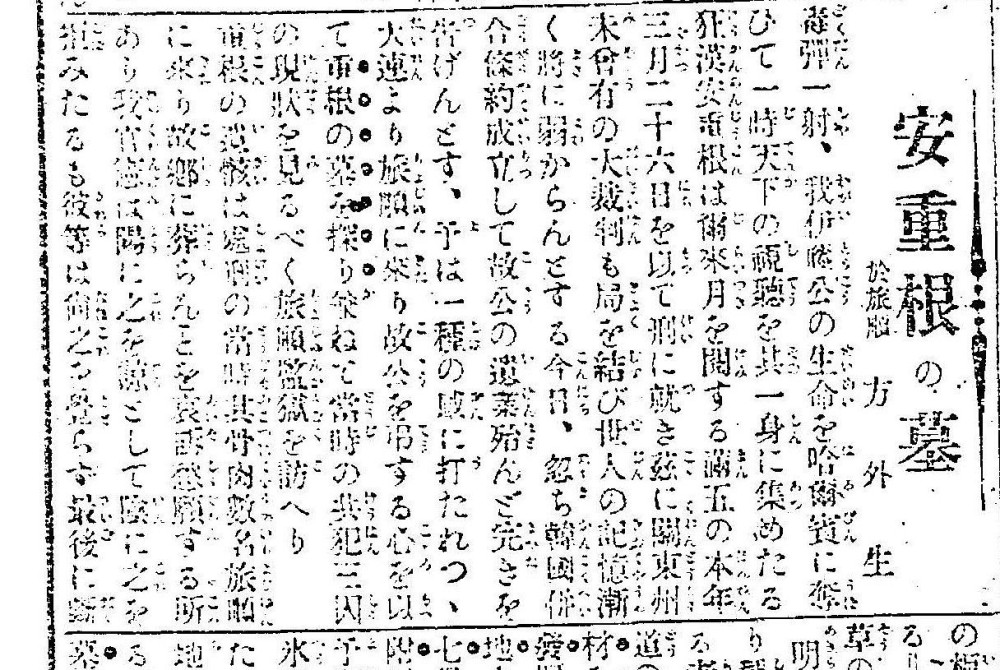 安重根の墓
於旅順 方外生
毒彈一射、我伊藤公の生命を哈爾賓に奪
ひて一時天下の視聽を其一身に集めたる
狂漢安重根は爾來月を閲する滿五の本年
三月二十六日を以て刑に就き茲に關東州
未曾有の大裁判も局を結び世人の記憶漸
く將に弱からんとする今日、忽ち韓國併
合條約成立して故公の遺業殆んど完きを
告げんとす、予は一種の感に打たれつゝ
大連より旅順に來り故公を弔する心を以
て重根の墓を探り兼ねて當時の共犯三囚
の現狀を見るべく旅順監獄を訪へり
重根の遺骸は處刑の當時其骨肉數名旅順
に來り故鄕に葬らんことを哀訴愁願する所
あり我官憲は陽に之を諒として陰に之を
拒みたるも彼等は尙之を覺らず最後に
の
る
草の
明
り
る
道の
材
地
七
階
予
氷
た
地
る
墓